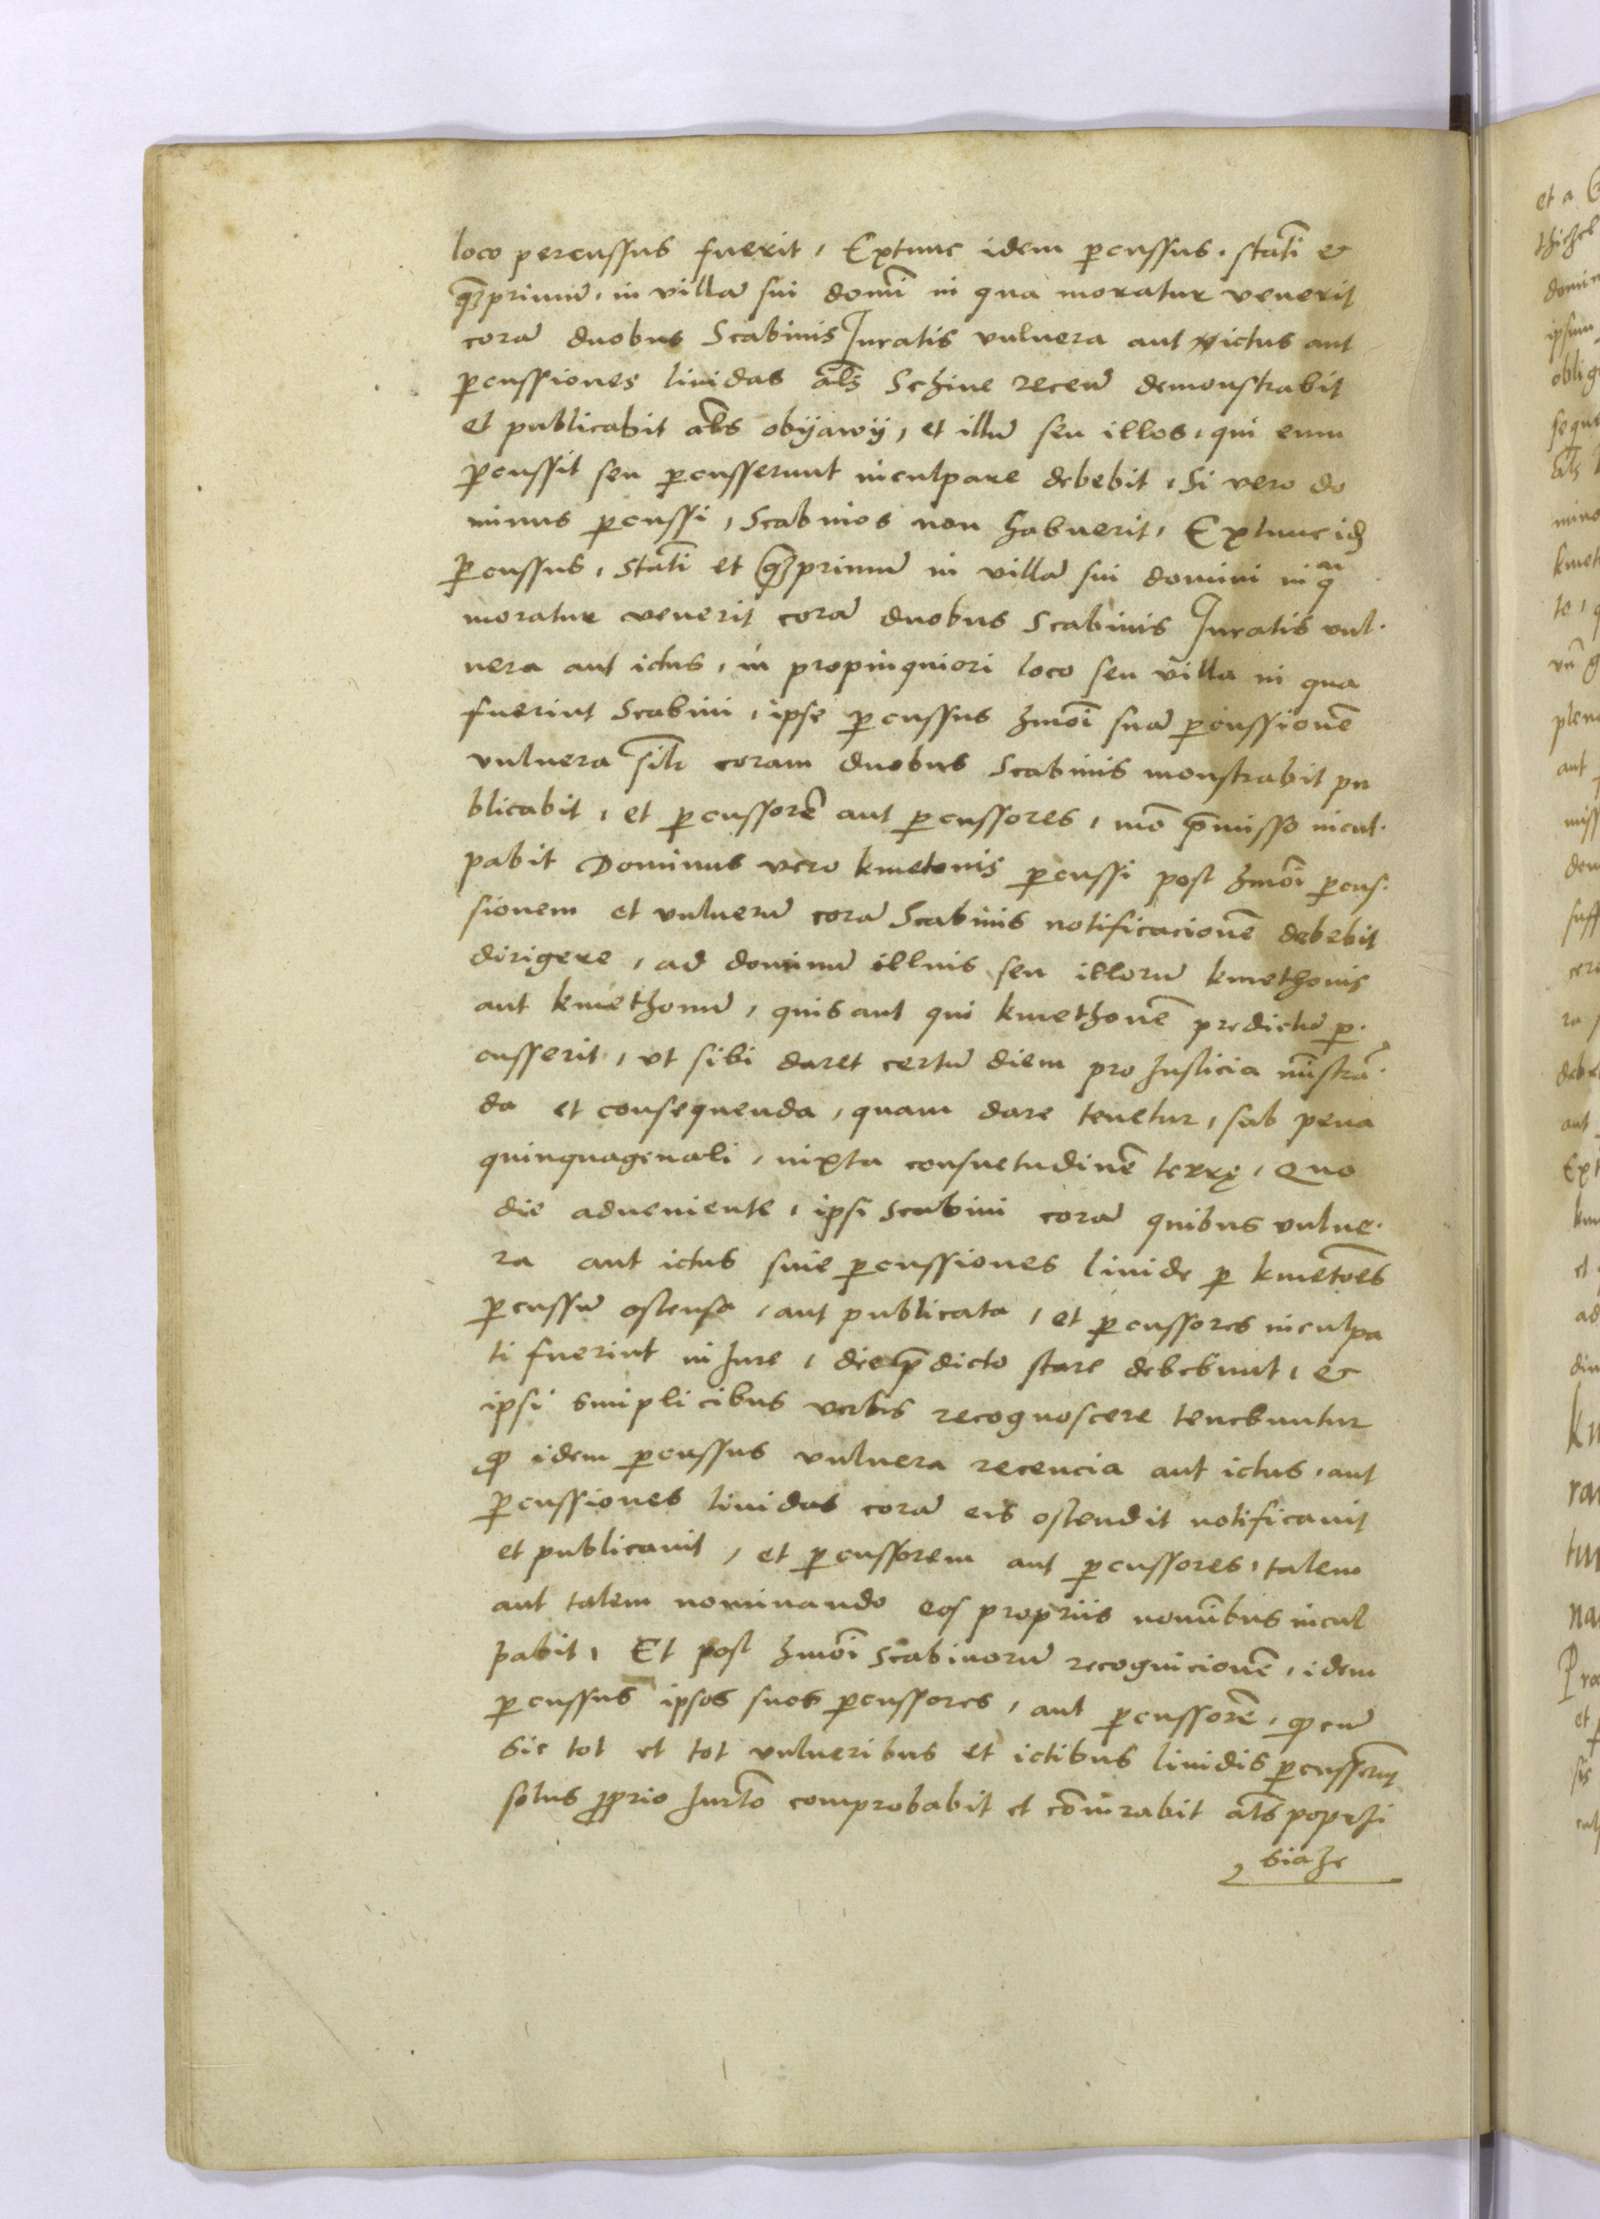 loco percussus fuerit, Extunc idem ꝑcussus. stati᷃ et
qᷓꝫprimu᷃, in villa᷃ sui domi᷃ in qua moratur venerit
cora᷃ duobus Scabinis Juratis vulnera aut ictus aut
ꝑcussiones liuidas al᷃s Schine recen᷃ demonstrabit
et publicabit al᷃s obyawy, et illu᷃ seu illos, qui eum
ꝑcussit seu ꝑcusserunt inculpare debebit, Si vero do
minus ꝑcussi, Scabinos non habuerit, Extunc idꝫ
ꝑcussus, Stati᷃ et qᷓꝫprimu᷃ in villa᷃ sui domini in qᵃ
moratur venerit cora᷃ duobus Scabinis Juratis vul-
nera aut ictus, in propinquiori loco seu villa in qua
fuerint Scabini, ipse ꝑcussus hmo᷃i sua᷃ ꝑcussione᷃
vulnera sil᷃r coram duobus Scabinis monstrabit pu
blicabit, et ꝑcussore᷃ aut ꝑcussores, mo᷃ p᷃misso incul-
pabit Dominus vero kmetonis ꝑcussi post hmo᷃i ꝑcus-
sionem et vulneru᷃ cora᷃ Scabinis notificacione᷃ debebit
dirigere, ad dominu᷃ illius seu illoru᷃ kmethonis
aut kmethonu᷃, quis aut qui kmethone᷃ predictu᷃ ꝑ-
cusserit, vt sibi daret certu᷃ diem pro Justicia mi᷃stra᷃-
da et consequenda, quam dare tenetur, sub pena
quinquagenali, iuxta consuetudine᷃ terrę, Quo
die adueniente, ipsi Scabini cora᷃ quibus vulne-
ra aut ictus siue ꝑcussiones liuide ꝑ kmeto᷃es
ꝑcussu᷃ ostensa, aut publicata, et ꝑcussores inculpa
ti fuerint in Jure, die p᷃dicto stare debebunt, et
ipsi simplicibus verbis recognoscere tenebuntur
ꝙ idem ꝑcussus vulnera recencia aut ictus, aut
ꝑcussiones liuidas cora᷃ eis ostendit notificauit
et publicauit, et ꝑcussorem aut ꝑcussores, talem
aut talem nominando eos propriis nomi᷃bus incul
pabit, Et post hmo᷃i Scabinoru᷃ recognicione᷃, idem
ꝑcussus ipsos suos ꝑcussores, aut ꝑcussore᷃, ꝙ eu᷃
sic tot et tot vulneribus et ictibus liuidis ꝑcusseru᷃t
solus ꝓprio Jurto᷃ comprobabit et com᷃rabit al᷃s poprzi
siaze